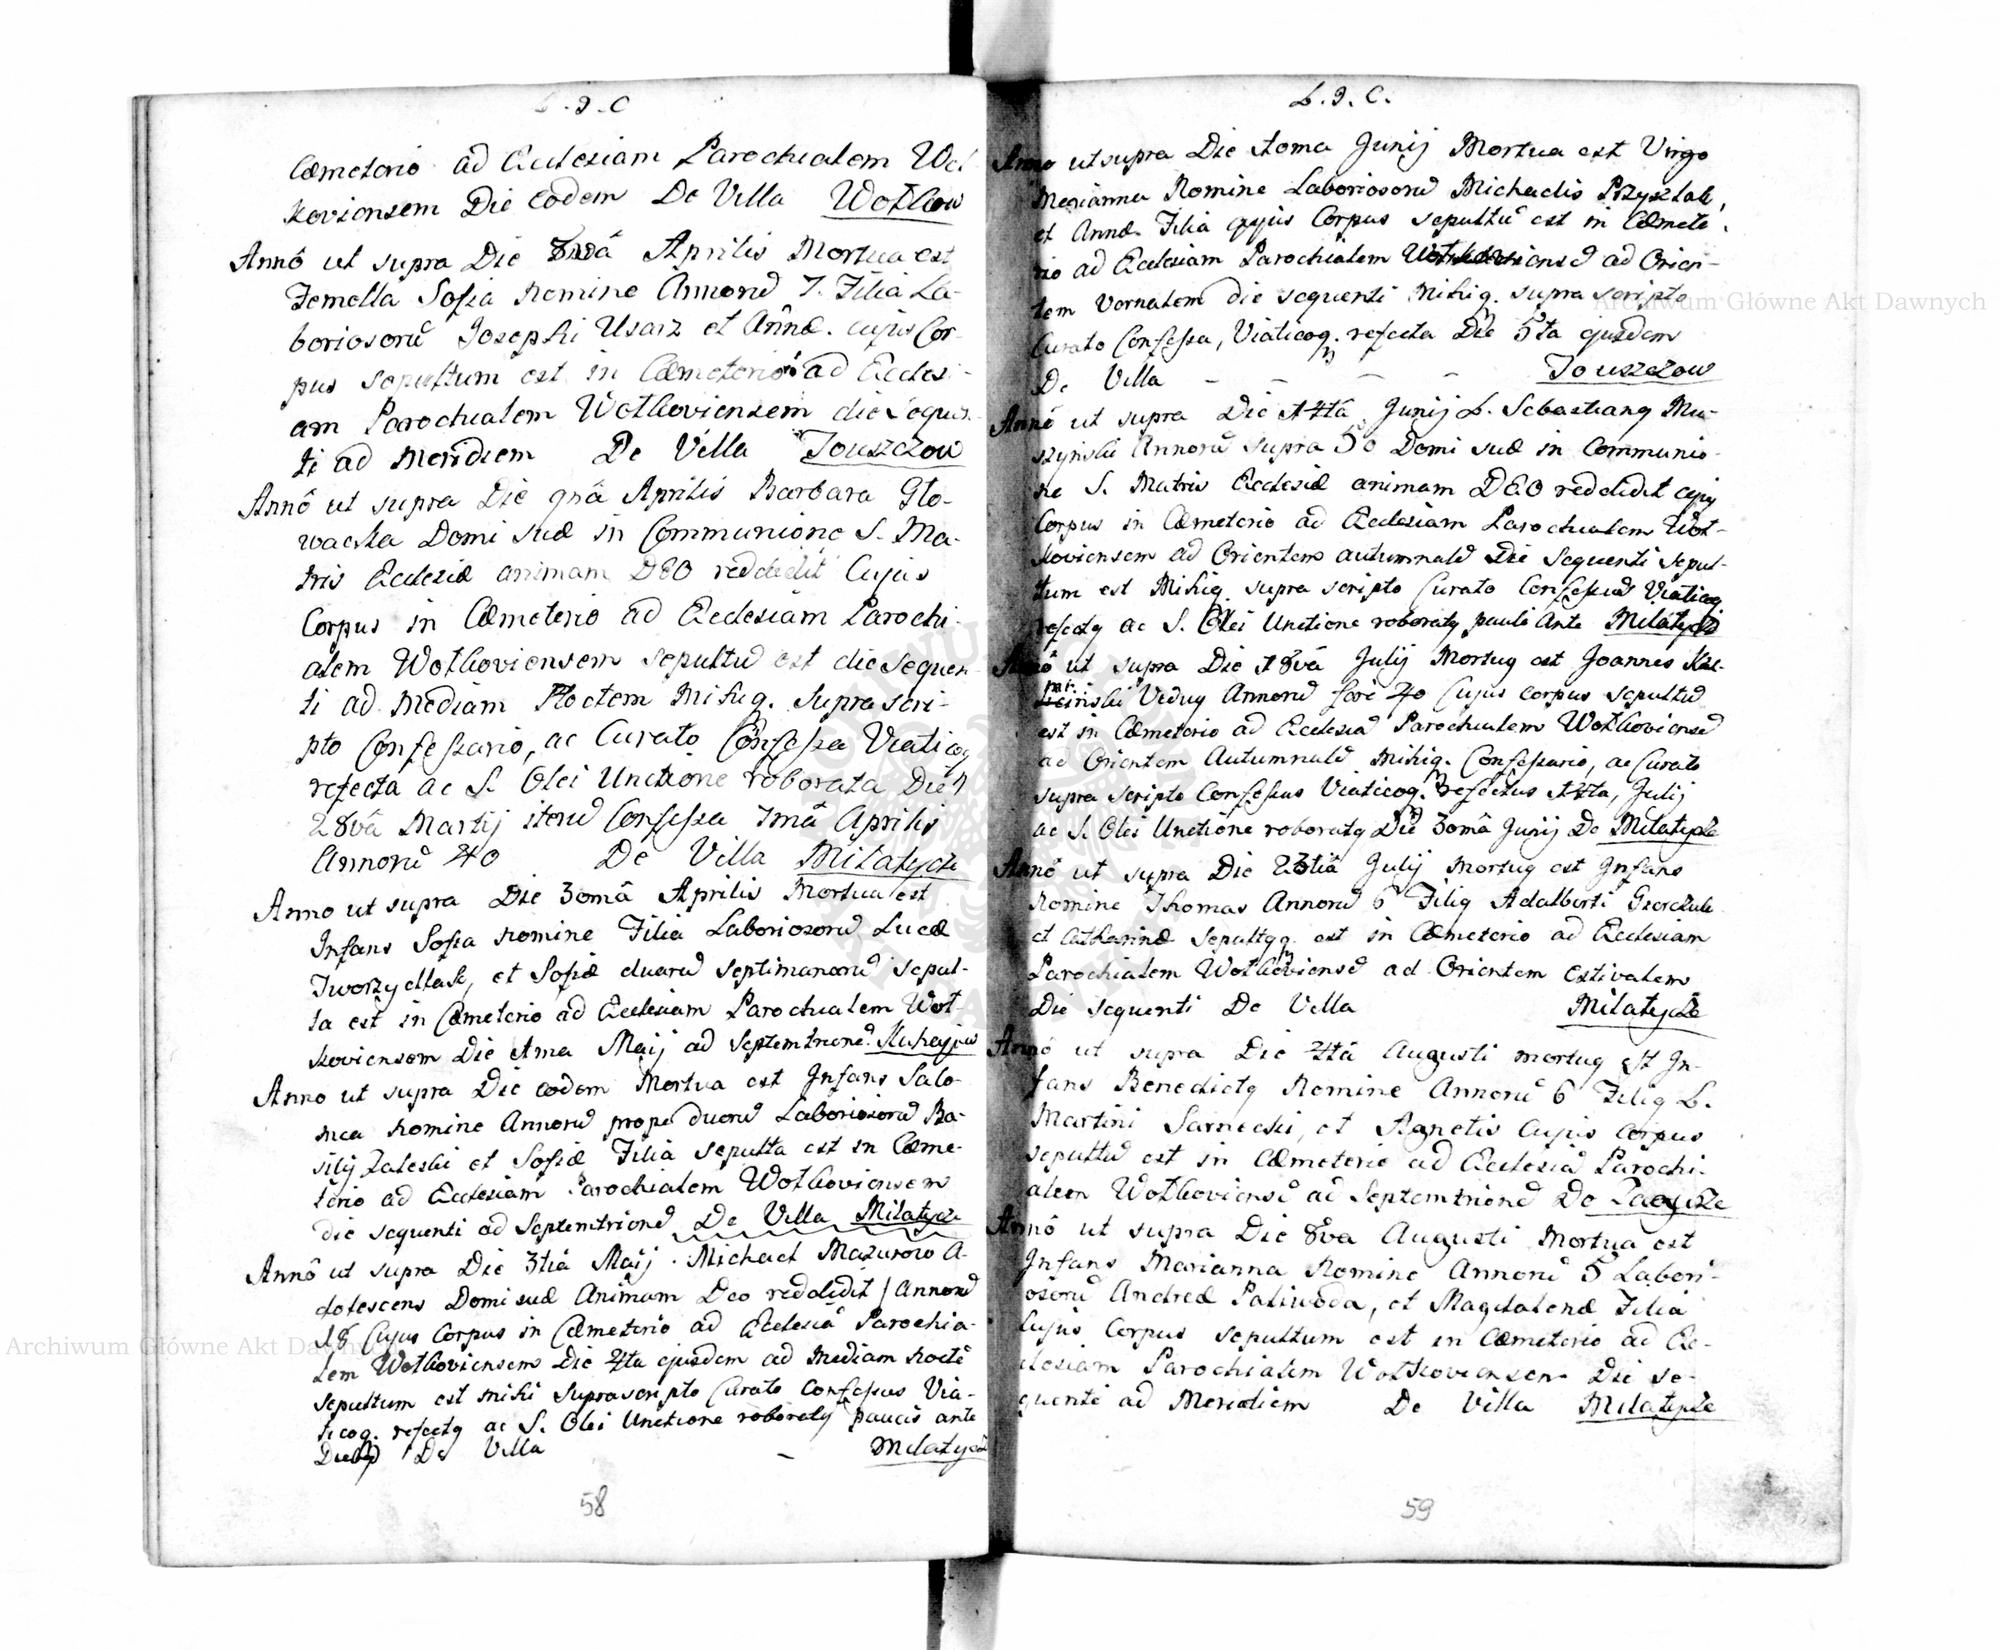 L. J. C
Cæmeterio ad Ecclesiam Parochialem Woł-
koviensem Die eodem De Villa Wołkow
Annô ut supra Die 8vâ Aprilis Mortua est
Femella Sofia Nomine Annorũ 7. Filia La-
boriosorũ Josephi Usarz et Annæ. cujus Cor-
pus sepultum est in Cæmeterio ad Ecclesi-
am Parochialem Wołkoviensem die sequen-
ti ad Meridiem De Villa Touszczow
Annô ut supra Die 9nâ Aprilis Barbara Gło-
wacka Domi suæ in Communione S. Ma-
tris Ecclesiæ animam DEO reddidit Cujus
Corpus in Cæmeterio ad Ecclesiam Parochi-
alem Wołkoviensem sepultũ est die sequen-
ti ad Mediam Noctem Mihiq. supra scri-
pto Confessario, ac Curato Confessa Viaticoq
refecta ac S. Olei Unctione roborata Die
28vâ Martij iterũ Confessa 7mâ Aprilis
Annorũ 40 De Villa Miłatycze
Anno ut supra Die 30mâ Aprilis Mortua est
Infans Sofia Nomine Filia Laboriosorũ Lucæ
Tworzydłak, et Sofiæ duarũ septimanarũ sepul-
ta est in Cæmeterio ad Ecclesiam Parochialem Woł-
koviensem Die 1ma Maij ad Septemtrionẽ
Anno ut supra Die eodem Mortua est Infans Salo-
mea Nomine Annorũ prope duorũ Laboriosorũ Ba-
silij Zaleski et Sofiæ Filia sepulta est in Cæme-
terio ad Ecclesiam Parochialem Wołkoviensem
die sequenti ad Septemtrionẽ De Villa Miłatycze
Annô ut supra Die 3tiâ Maij. Michael Mazurow A-
dolescens Domi suæ Animam Deo reddidit / Annorũ
18 Cujus Corpus in Cæmeterio ad Ecclesiã Parochia-
lem Wołkoviensem Die 4ta ejusdem ad Mediam noctẽ
sepultum est mihi Suprascripto Curato Confessus Via-
ticoq. refectq ac S. Olei Unctione roboratq paucis ante
De Villa Miłatycz
58
L. J. C.
Anno ut supra Die 10ma Junij Mortua est Virgo
Marianna Nomine Laboriosorũ Michaelis Przysztak,
et Annæ Filia cujus Corpus sepultũ est in Cæmete-
rio ad Ecclesiam Parochialem ad Orien-
tem Vernalem die sequenti Mihiq. supra scripto
Curato Confessa, Viaticoq. refecta Die 5ta ejusdem
De Villa - - - - Touszczow
Annô ut supra Die 14tâ Junij L. Sebastianq Mu-
szyński Annorũ supra 50 Domi suæ in Communio-
ne S. Matris Ecclesiæ animam DEO reddidit cujq
Corpus in Cæmeterio ad Ecclesiam Parochialem Woł-
koviensem ad Orientem autumnalẽ Die Sequenti sepul-
tum est Mihiq. supra scripto Curato Confessus Viaticoq
refectq ac S. Olei Unctione roboratq pauli Ante
Annô ut supra Die 18vâ Julij Mortuq est Joannes
Viduq Annorũ fere 40 Cujus corpus sepultũ
est in Cæmeterio ad Ecclesiã Parochialem Wołkoviensẽ
ad Orientem Autumnalẽ Mihiq. Confessario, ac Curato
supra scripto Confessus Viaticoq. refectus 14ta, Julij
ac S. Olei Unctione roboratq Die 30mâ Junij De Miłatycze
Annô ut supra Die 23tiâ Julij Mortuq est Infans
Nomine Thomas Annorũ 6 Filiq Adalberti
et Catharinæ Sepultqq. est in Cæmeterio ad Ecclesiam
Parochialem Wołkoviensẽ ad Orientem Æstivalem
Die Sequenti De Villa Miłatycze
Annô ut supra Die 4tâ Augusti mortuq est In-
fans Benedictq Nomine Annorũ 6 Filiq L.
Martini Sarnecki, et Agnetis Cujus Corpus
sepultũ est in Cæmeterio ad Ecclesiã Parochi-
alem Wołkoviensẽ ad Septemtrionẽ De
Annô ut supra Die 8va Augusti Mortua est
Infans Marianna Nomine Annorũ 5 Labori-
osorũ Andreæ Paliwoda, et Magdalenæ Filia
Cujus Corpus sepultum est in Cæmeterio ad Ec-
clesiam Parochialem Wołkoviensem Die se-
quenti ad Meridiem De Villa Miłatycze
59
Archiwum Główne Akt Dawnych
Archiwum Główne Akt Dawnych